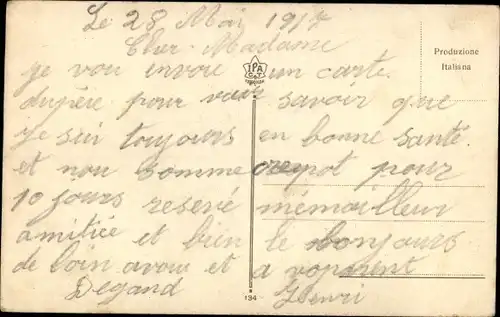 Le 28 Mai 1917
Cher Madame
je vou envoie un carte.
pour vous savoir que
je sui toujours en bonne santé.
et nou somme repot pour
10 jours reservé mémailleur
amitiée et bien le bonjours
de loin avou et a vo parent
Degand Henri
Produzione
Italiana
IPA
CT
134